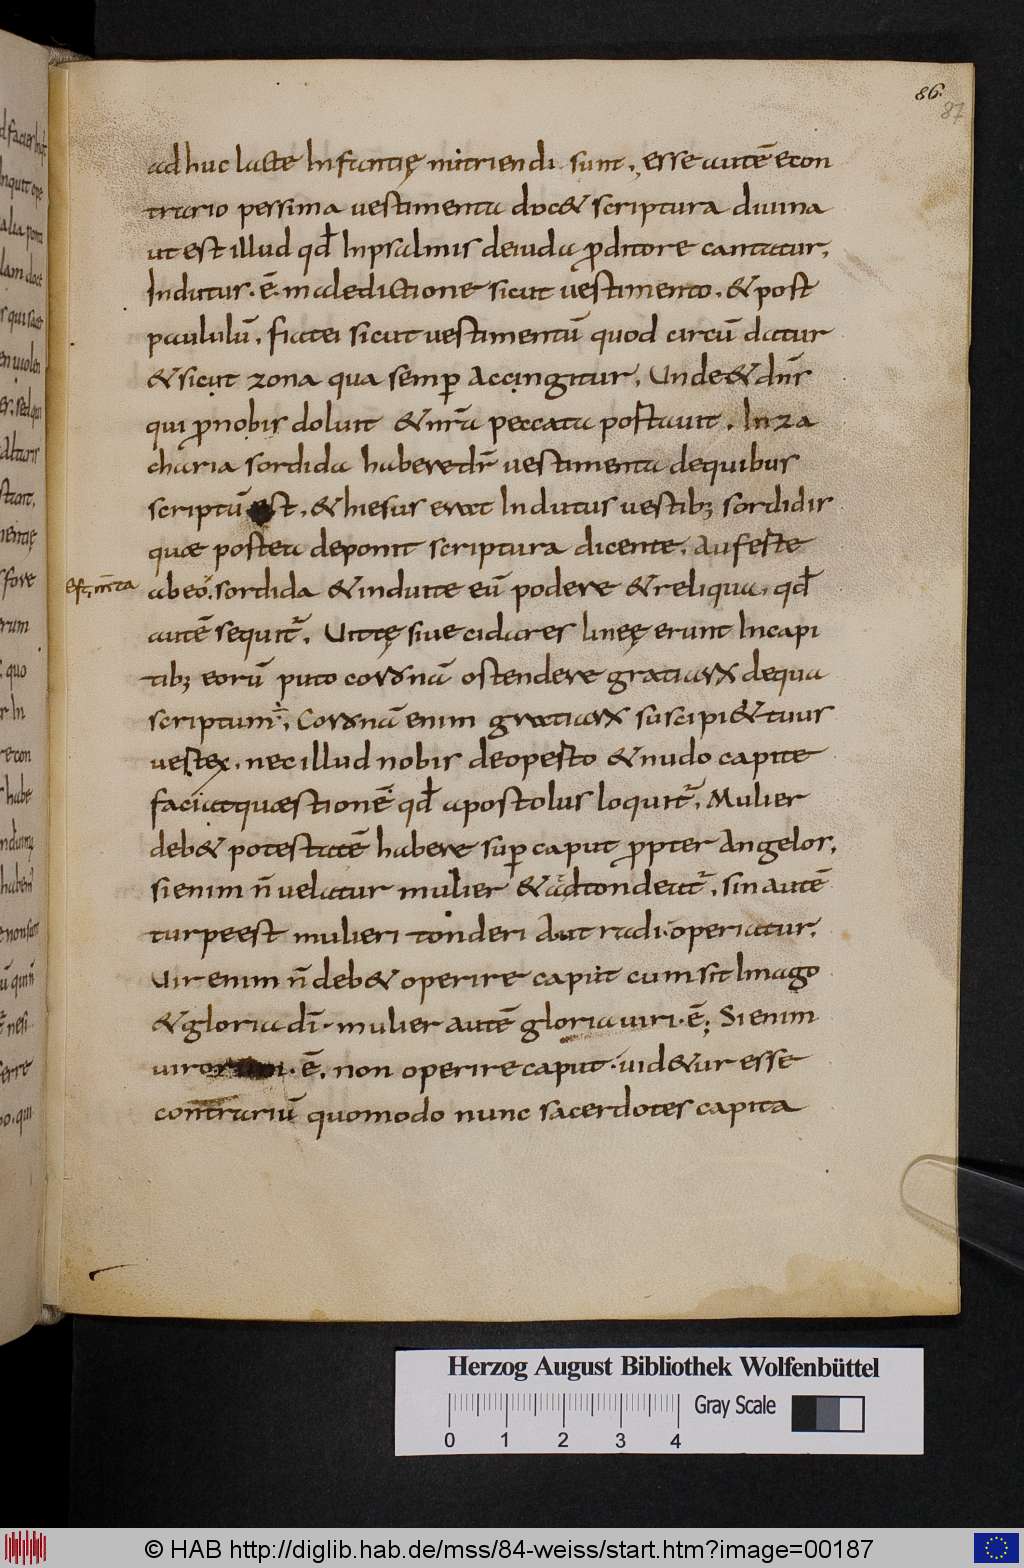 86.
87
adhuc lacte Infantię nutriendi sunt, esse autē econ
trario pessima uestimenta doc& scriptura diuina
ut est illud qđ Inpsalmis deiuda p̄ditore cantatur,
Indutus · ē · maledictione sicut uestimento, & post
paululū, fiatei sicut uestimentū quod circū datur
& sicut zona qua semp accingitur, Unde & dn̄s
qui p̄nobis doluit & nr̄a peccata postauit, In za
charia sordida habere dr̄ uestimenta dequibus
scriptū est, & hiesus erat Indutus uestib; sordidis
quæ postea deponit scriptura dicente, Aufeste
abeo, sordida & induite eū podere & reliqua, qđ
est, m̄ta
autē sequit̄, Uittę siue cidares lineę erunt Incapi
tib; eorū puto coronā ostendere gratiarx dequa
scriptum, Coronā enim gratiarx suscipi& tuus
uestex, nec illud nobis deopesto & nudo capite
faciat quæstionē qđ apostolus loquit̄, Mulier
deb& potestatē habere sup caput p̄pter Angelos,
si enim n̄ uelatur mulier & adtondeat̄, sin autē
turpe est mulieri tonderi Aut radi operiatur,
Uir enim n̄ deb& operire caput cum sit Imago
& gloria dī · mulier autē gloria uiri · ē; Si enim
uirorum · ē, non operire caput · uid&ur esse
contrariū quomodo nunc sacerdotes capita
Herzog August Bibliothek Wolfenbüttel
Gray Scale
0 1 2 3 4
© HAB http://diglib.hab.de/mss/84-weiss/start.htm?image=00187